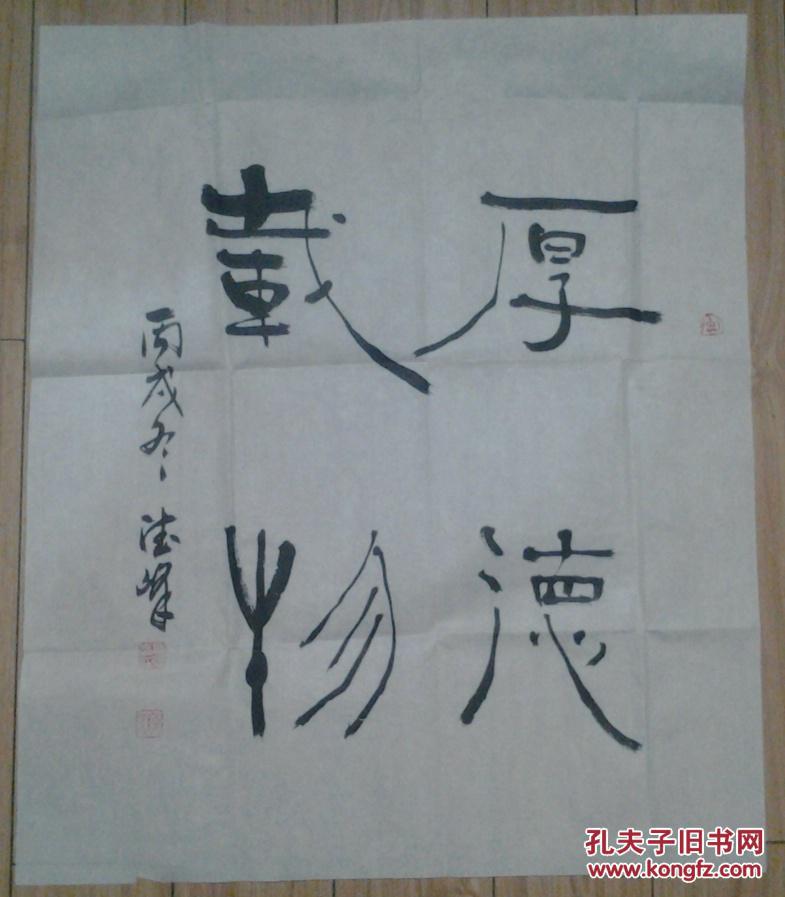 厚德
载物
丙戌冬 德峰
孔夫子旧书网
www.kongfz.com